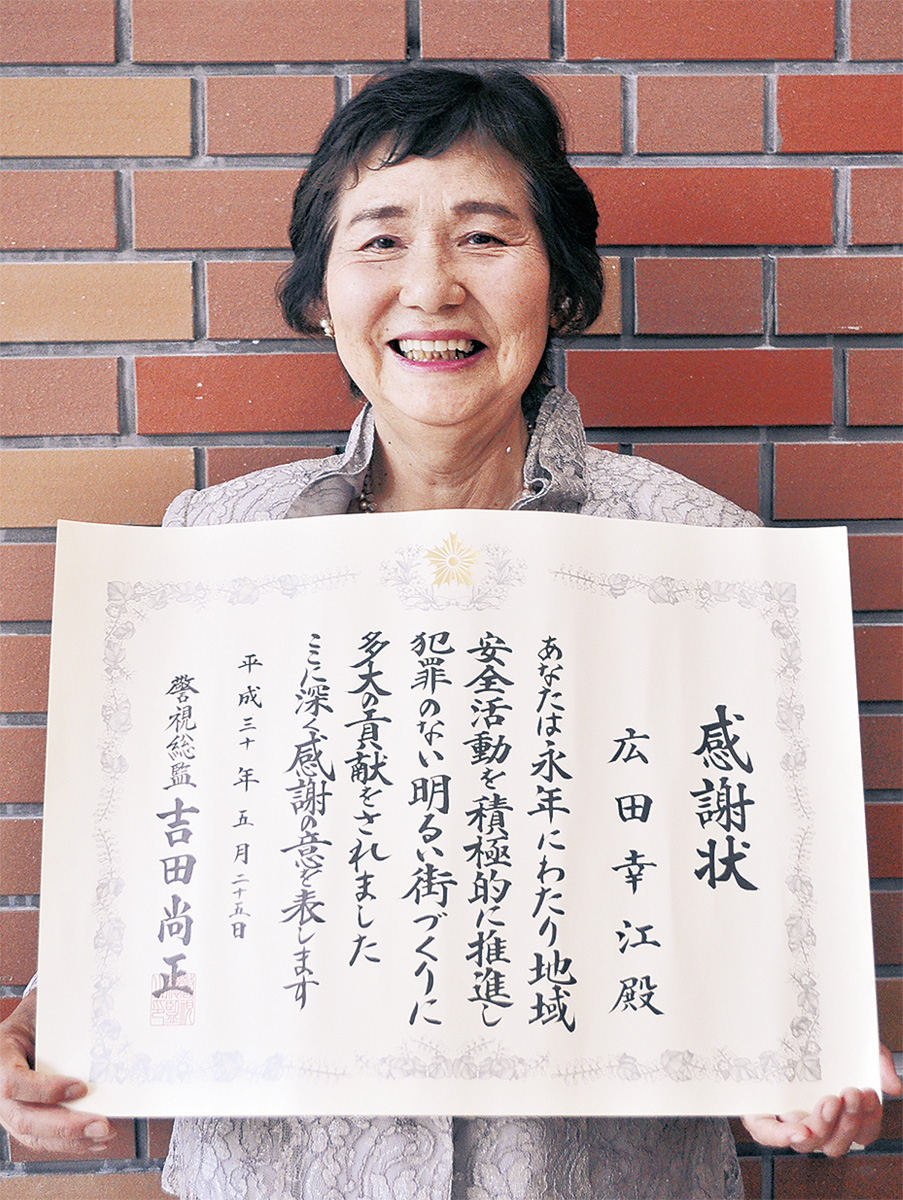 感謝状
広田幸江殿
あなたは永年にわたり地域
安全活動を積極的に推進し
犯罪のない明るい街づくりに
多大の貢献をされました
ここに深く感謝の意を表します
平成三十年五月二十五日
警視総監 吉田尚正